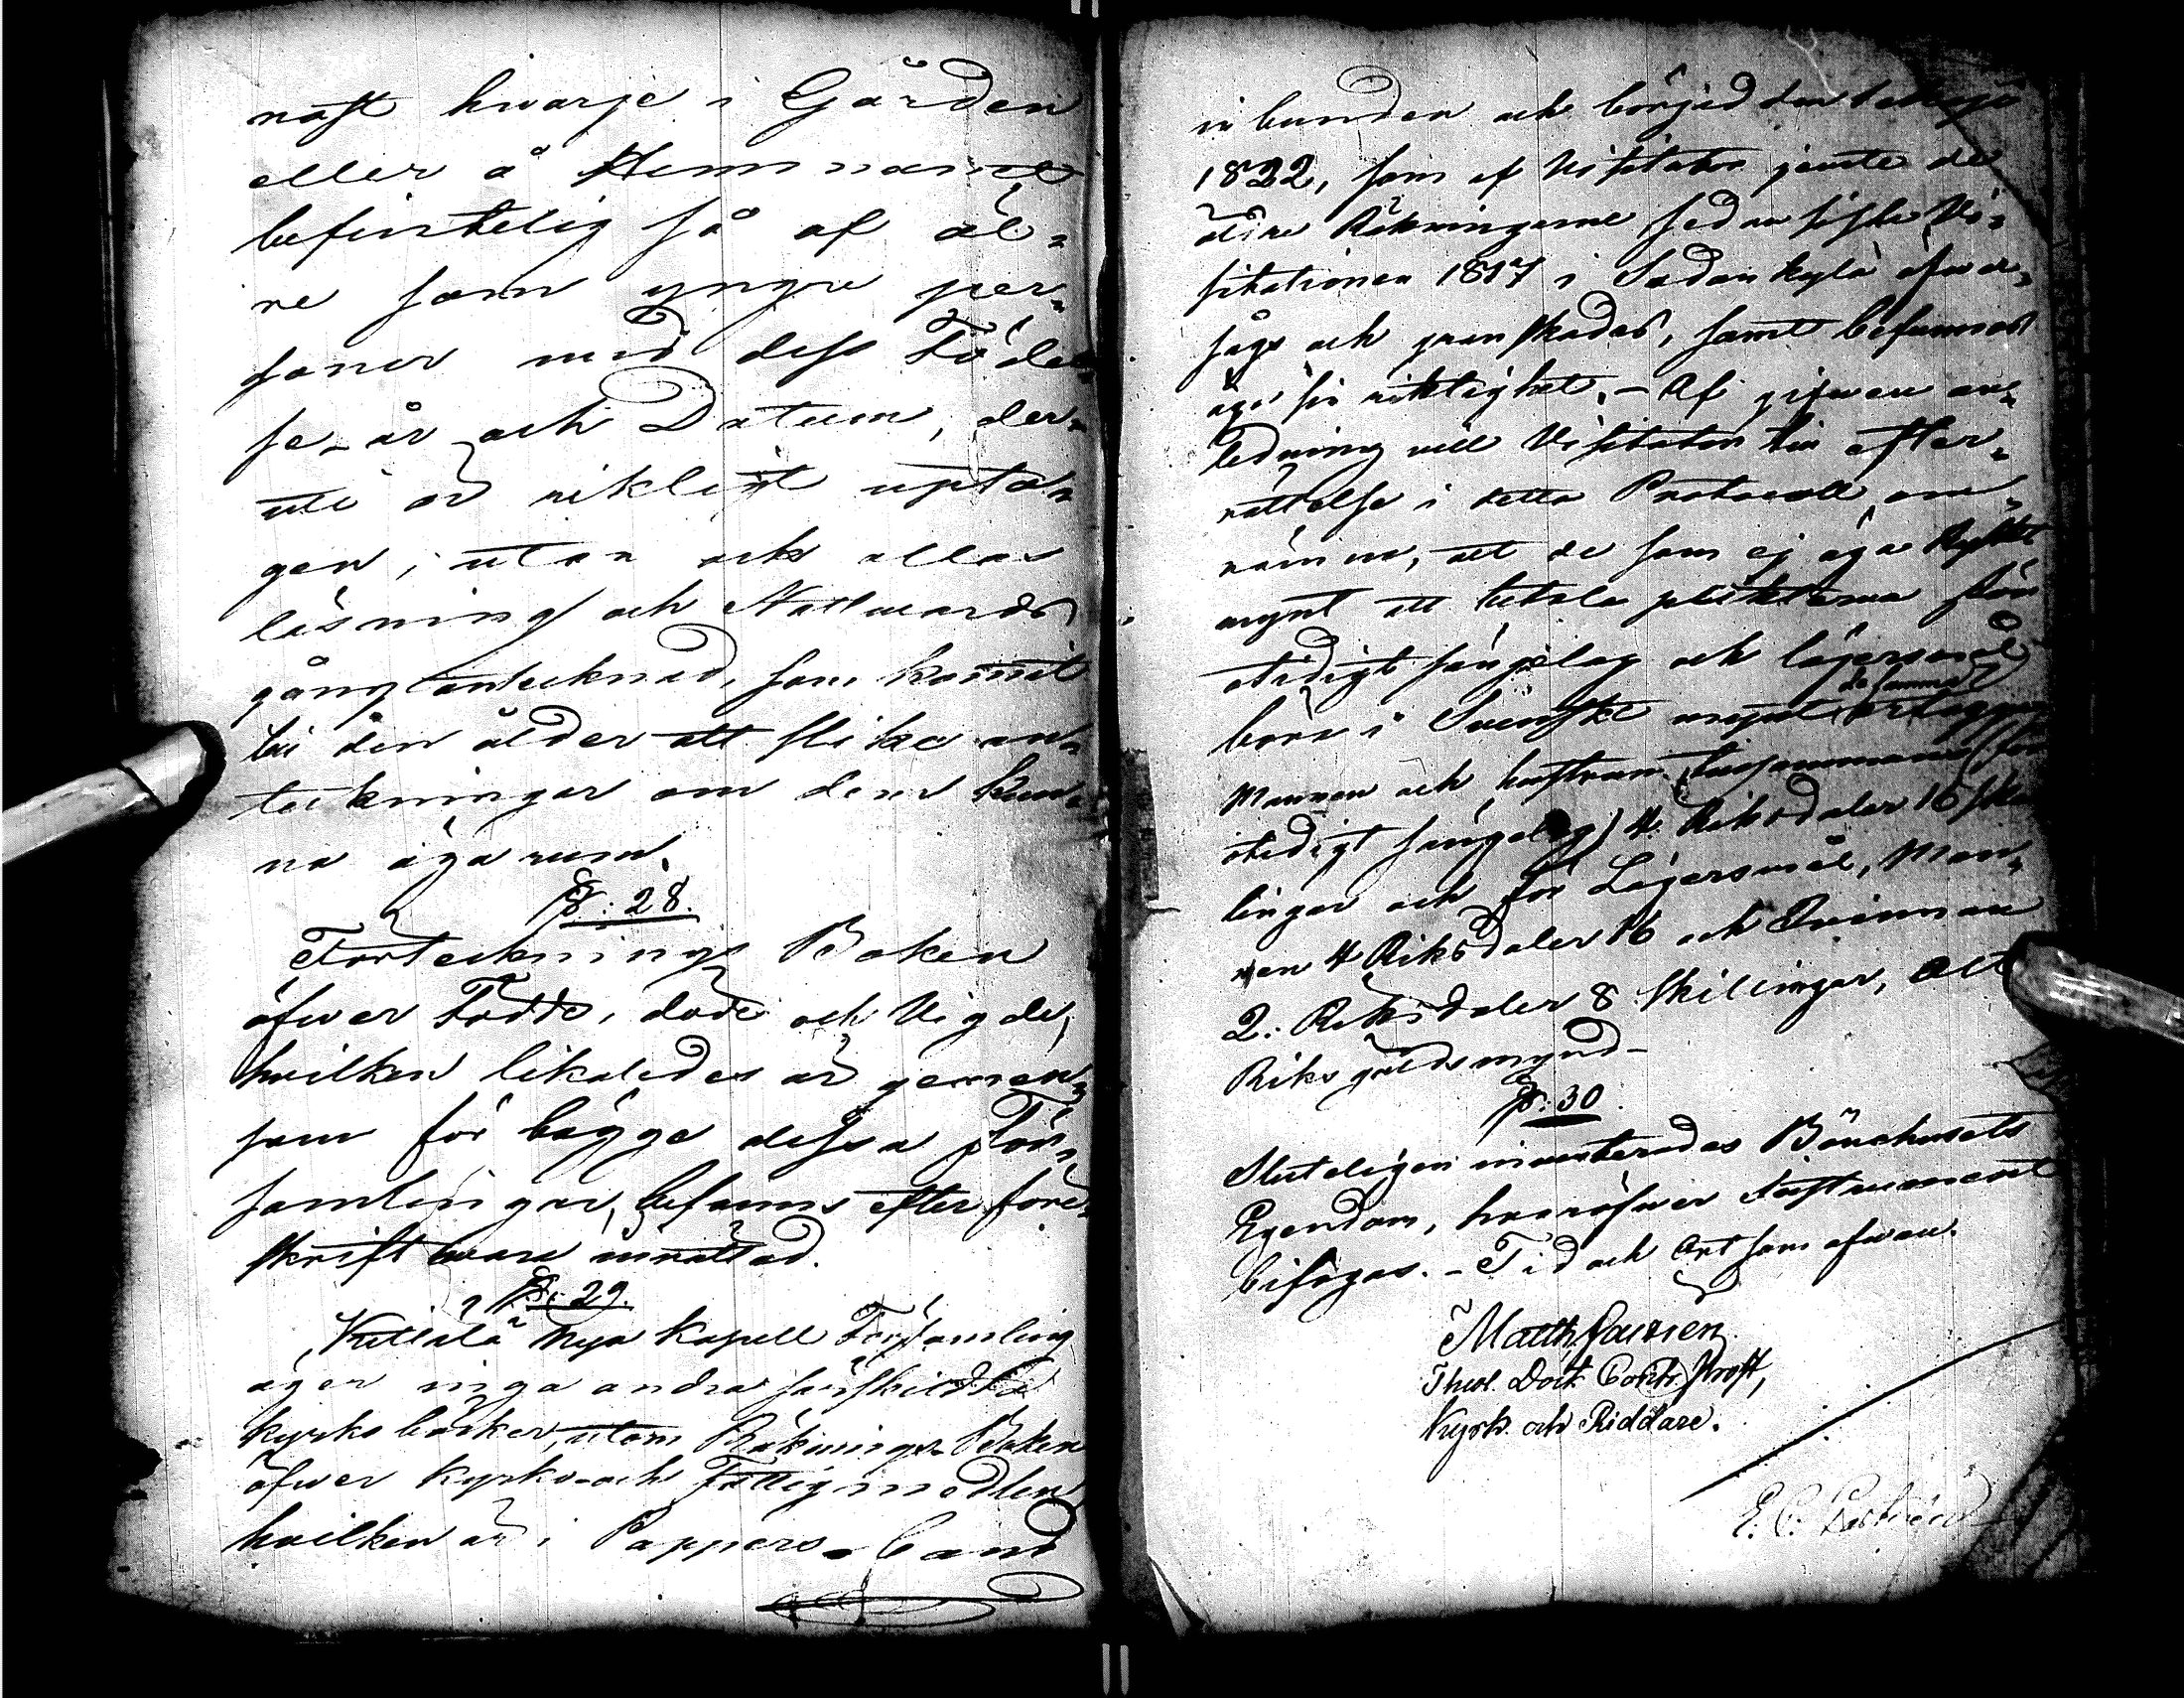 nast hwarje i Gården
eller å Hemmanet
befintelig så af äl-
re som yngre per-
soner med dess Födel-
se-år och Datum, der-
uti är riktigt upta-
gen, utan ock allas
läsning och Nattwards
gång antecknad, som kommit
til den ålder att slike an-
teckningar om dem kun-
na äga rum.
§: 28.
Förtecknings Boken
öfwer Födde, döde och Wigde,
hwilken likaledes är gemen-
sam för bägge dessa För-
samlingar, befanns efter före-
skrift wara inrättad.
§: 29.
Kittilä Nya Kapell Församling
äger inga andra särskildta
kyrko böcker, utom Räknings-Boken
öfwer kyrko- och Fattigmedlen
hvilken är i Pappers-band
in bunden och börjad den
1822, som af Visitator jemte de
äldre Räkningarne sedan sista Vi-
sitationen 1817 i Sodankylä öfwer-
sågs och granskades, samt befunnos
äga sin riktighet. - Af gifwen an-
ledning will Visitator til efter-
rättelse i detta Protocoll om-
nämna, att de som ej äga Ryskt
mynt att betala plikterna för
otidigt sängelag och lägersmål
böra i Svenskt mynt desamma erlägga
Mannen och hustrun tilsammans för
otidigt sängelag 4 Riksdaler 16 skil-
lingar och för Lägersmål, Man-
nen 4 Riksdaler 16 och Qvinnan
2: Riksdaler 8 Skillingar, alt
Riksgäldsmynd-
§: 30.
Sluteligen inventerades Bönehusets
Egendom, hvaröfwer Instrument
bifogas. - Tid och Ort som ofwan.
Matth.
Theol. Doct. Contr. Prost,
Kyrkh. och Riddare.
E. C.